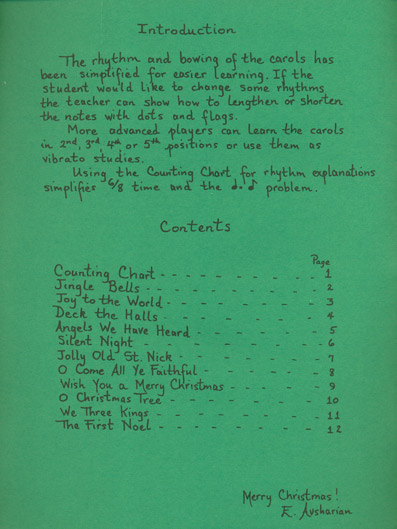 Introduction
The rhythm and bowing of the carols has
been simplified for easier learning. If the
student would like to change some rhythms
the teacher can show how to lengthen or shorten
the notes with dots and flags.
More advanced players can learn the carols
in 2nd, 3rd, 4th or 5th positions or use them as
vibrato studies.
Using the Counting Chart for rhythm explanations
simplifies 6/8 time and the ♩. ♪ problem.
Contents
Page
Counting Chart - - - - - - - - - 1
Jingle Bells - - - - - - - - - 2
Joy to the World - - - - - - - - 3
Deck the Halls - - - - - - - - 4
Angels We Have Heard - - - - - - 5
Silent Night - - - - - - - - - 6
Jolly Old St. Nick - - - - - - - 7
O Come All Ye Faithful - - - - - - 8
Wish You a Merry Christmas - - - - 9
O Christmas Tree - - - - - - - 10
We Three Kings - - - - - - - - 11
The First Noel - - - - - - - - 12
Merry Christmas!
E. Avsharian